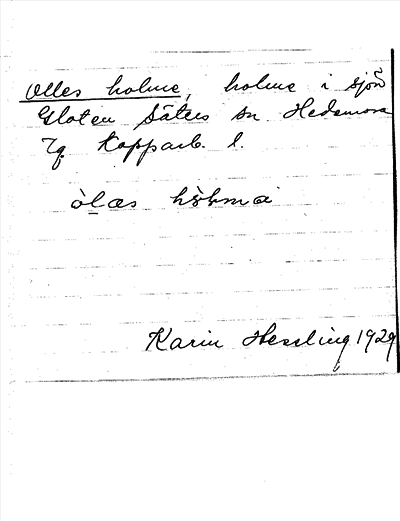 Olles holme, holme i sjön
Gloten Säters sn. Hedemora
Tg. Kopparb. l.
òlæs
Karin Hessling 1929